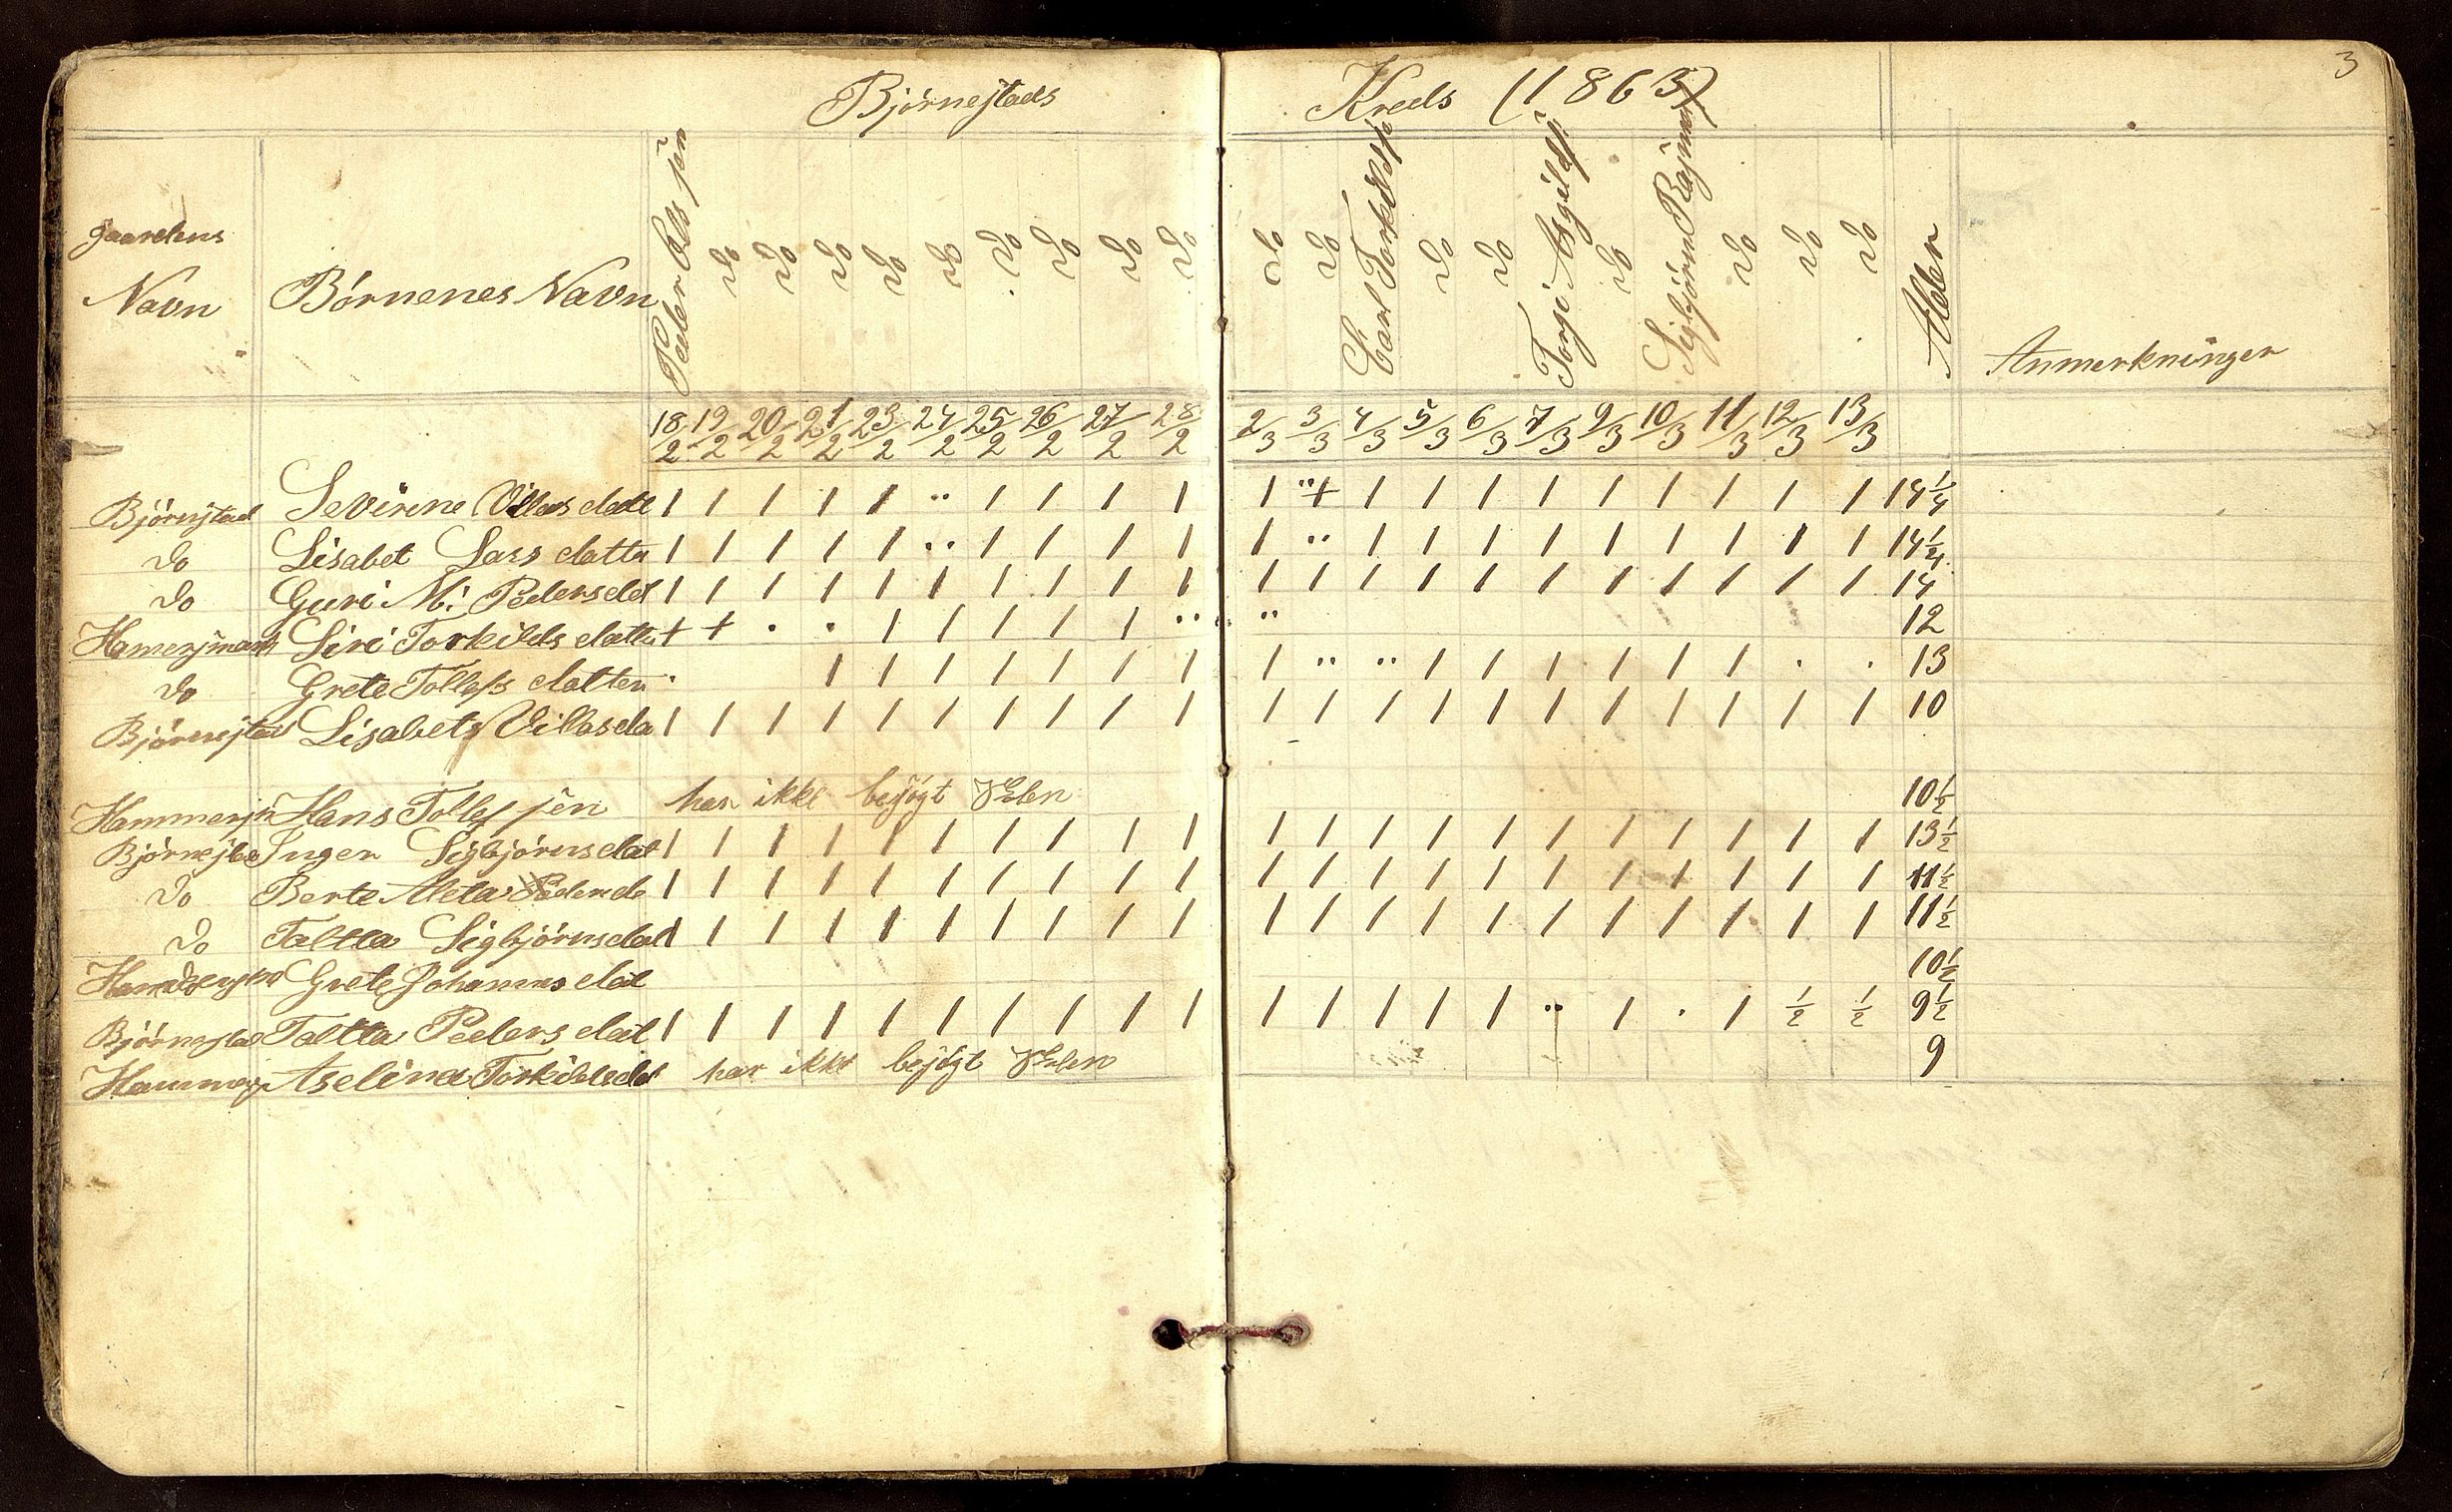 3
Björnestads Kreds (1863)
Gaardens Navn Börnenes Navn Peder Olls sen Do Do Do Do Do Do Do Do Do Do Do Carl Torkilds Do Do Torje Asgilds Do Sigbjörn Rasmus Do Do Do Alder Anmerkninger
18/2 19/2 20/2 21/2 23/2 24/2 25/2 26/2 27/2 28/2 2/3 3/3 4/3 5/3 6/3 7/3 9/3 10/3 11/3 12/3 13/3
Björnstad Severine Villas datt 1 1 1 1 1 .. 1 1 1 1 1 ..+ 1 1 1 1 1 1 1 1 1 14 1/4
Do Lisabet Lars datte 1 1 1 1 1 .. 1 1 1 1 1 .. 1 1 1 1 1 1 1 1 1 14 1/4
Do Guri M: Pedersdat 1 1 1 1 1 1 1 1 1 1 1 1 1 1 1 1 1 1 1 1 1 14
Hamersmark Siri Torkilds datte + + . . 1 1 1 1 1 .. .. 12
Do Grete Tollefs datter . 1 1 1 1 1 1 1 1 .. .. 1 1 1 1 1 1 . . 13
Björnestad Lisabets Villasda 1 1 1 1 1 1 1 1 1 1 1 1 1 1 1 1 1 1 1 1 1 10
Hammersm Hans Tollef sen har ikke besögt Skolen 10 1/2
Björnestad Inger Sigbjörnsdat 1 1 1 1 1 1 1 1 1 1 1 1 1 1 1 1 1 1 1 1 1 13 1/2
Do Berte Meta Peders da 1 1 1 1 1 1 1 1 1 1 1 1 1 1 1 1 1 1 1 1 1 11 1/2
Do Taltta Sigbjörnsdat 1 1 1 1 1 1 1 1 1 1 1 1 1 1 1 1 1 1 1 1 1 11 1/2
Grete Johannes dat 10 1/2
Björnestad Taltta Peders dat 1 1 1 1 1 1 1 1 1 1 1 1 1 1 1 .. 1 . 1 1/2 1/2 9 1/2
Hammers Aselina Torkildsdat har ikke besögt Skolen 9